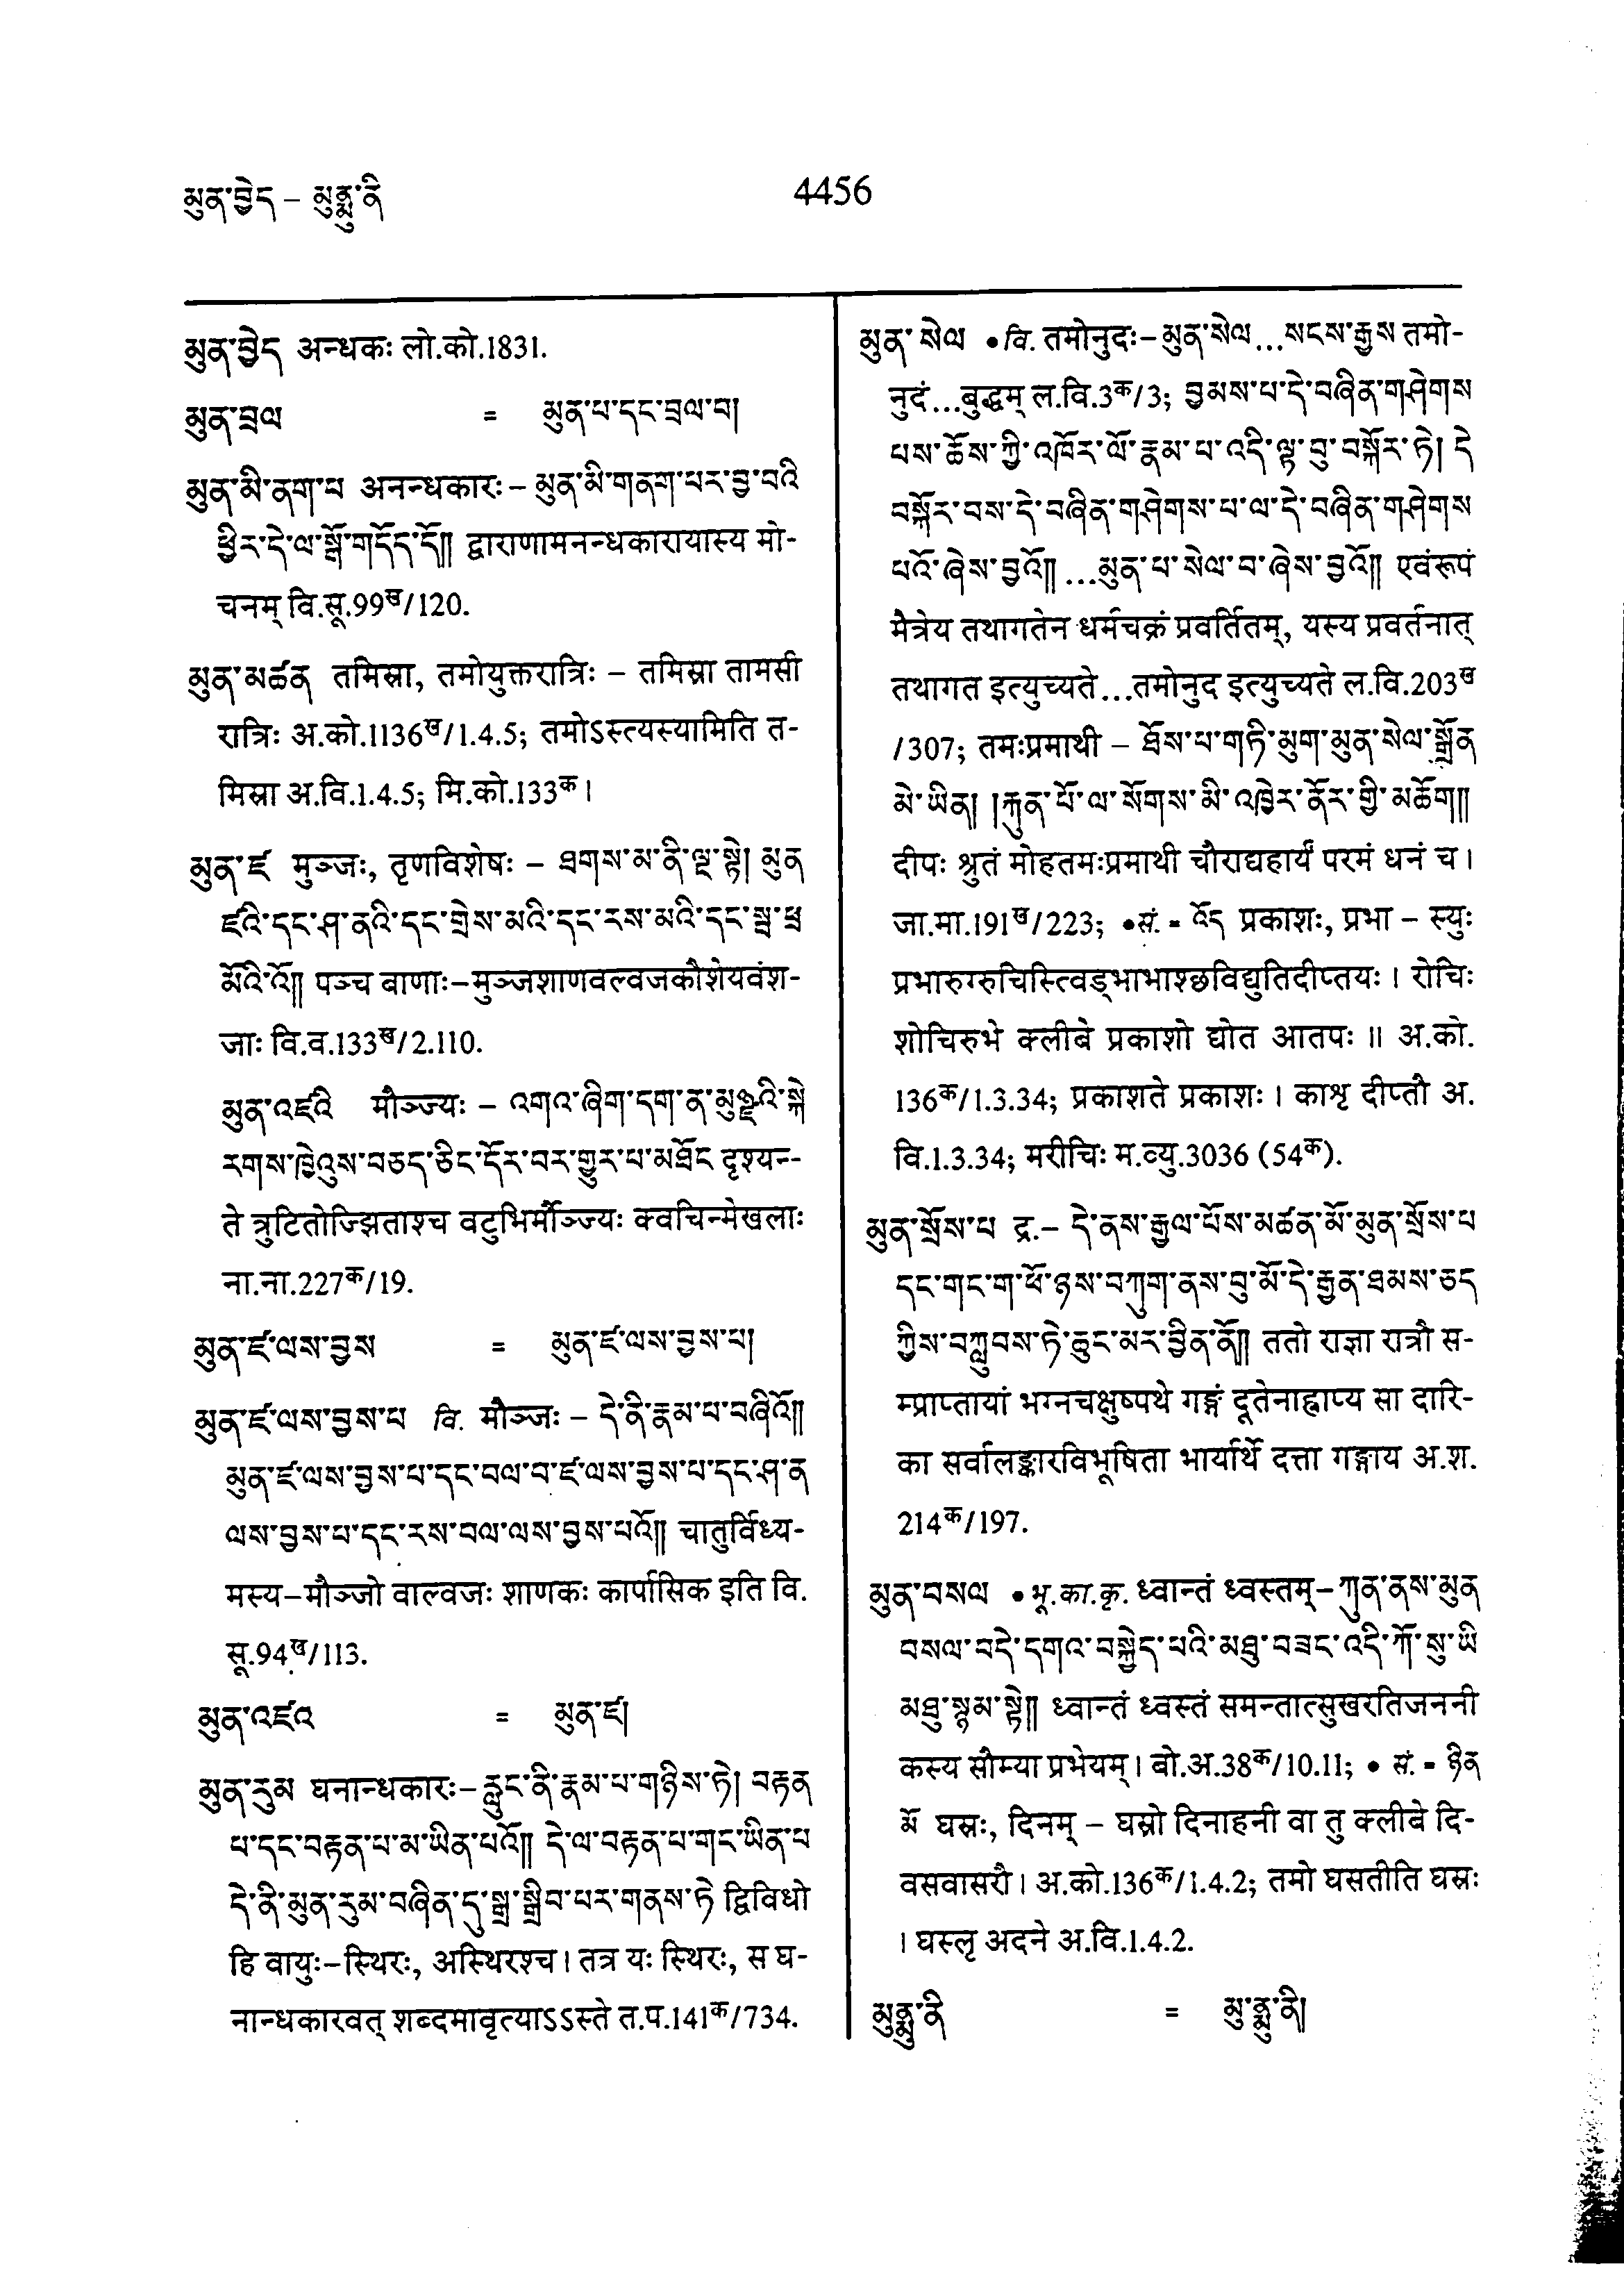 མུན་བྱེད – མུནྨུ་ནི
4456
མུན་བྱེད अन्धकः लो.को.1831.
མུན་བྲལ = མུན་པ་དང་བྲལ་བ།
མུན་མི་ནག་པ अनन्धकारः – མུན་མི་གནག་པར་བྱ་བའི
ཕྱིར་དེ་ལ་སྒོ་གདོད་དོ།། द्वाराणामनन्धकारायास्य मो-
चनम् वि.सू.99ख/120.
མུན་མཚན तमिस्रा, तमोयुक्तरात्रिः – तमिस्रा तामसी
रात्रिः अ.को.1136ख/1.4.5; तमोऽस्त्यस्यामिति त-
मिस्रा अ.वि.1.4.5; मि.को.133क।
མུན་ཛ मुञ्जः, तृणविशेषः – ཐགས་མ་ནི་ལྔ་སྟེ། མུན
ཛའི་དང་ཤ་ནའི་དང་གྲེས་མའི་དང་རས་མའི་དང་སྦ་ཕྲ
མོའི་འོ།། पञ्च वाणाः–मुञ्जशाणवल्वजकौशेयवंश-
जाः वि.व.133ख/2.110.
མུན་འཛའི मौञ्ज्यः – འགའ་ཞིག་དག་ན་མུཉྫའི་སྐེ
རགས་ཁྱེའུས་བཅད་ཅིང་དོར་བར་གྱུར་པ་མཐོང दृश्यन्-
ते त्रुटितोज्झिताश्च वटुभिर्मौञ्ज्यः क्वचिन्मेखलाः
ना.ना.227क/19.
མུན་ཛ་ལས་བྱས = མུན་ཛ་ལས་བྱས་པ།
མུན་ཛ་ལས་བྱས་པ वि. मौञ्जः – དེ་ནི་རྣམ་པ་བཞིའོ།།
མུན་ཛ་ལས་བྱས་པ་དང་བལ་བ་ཛ་ལས་བྱས་པ་དང་ཤ་ན
ལས་བྱས་པ་དང་རས་བལ་ལས་བྱས་པའོ།། चातुर्विध्य-
मस्य–मौञ्जो वाल्वजः शाणकः कार्पासिक इति वि.
सू.94ख/113.
མུན་འཛའ = མུན་ཛ།
མུན་རུམ घनान्धकारः– རླུང་ནི་རྣམ་པ་གཉིས་ཏེ། བརྟན
པ་དང་བརྟན་པ་མ་ཡིན་པའོ།། དེ་ལ་བརྟན་པ་གང་ཡིན་པ
དེ་ནི་མུན་རུམ་བཞིན་དུ་སྒྲ་སྒྲིབ་པར་གནས་ཏེ द्विविधो
हि वायुः–स्थिरः, अस्थिरश्च। तत्र यः स्थिरः, स घ-
नान्धकारवत् शब्दमावृत्याऽऽस्ते त.प.141क/734.
མུན་སེལ • वि. तमोनुदः– མུན་སེལ...སངས་རྒྱས तमो-
नुदं...बुद्धम् ल.वि.3क/3; བྱམས་པ་དེ་བཞིན་གཤེགས
པས་ཆོས་ཀྱི་འཁོར་ལོ་རྣམ་པ་འདི་ལྟ་བུ་བསྐོར་ཏེ། དེ
བསྐོར་བས་དེ་བཞིན་གཤེགས་པ་ལ་དེ་བཞིན་གཤེགས
པའོ་ཞེས་བྱའོ།། ...མུན་པ་སེལ་བ་ཞེས་བྱའོ།། एवंरूपं
मैत्रेय तथागतेन धर्मचक्रं प्रवर्तितम्, यस्य प्रवर्तनात्
तथागत इत्युच्यते...तमोनुद इत्युच्यते ल.वि.203ख
/307; तमःप्रमाथी – ཐོས་པ་གཏི་མུག་མུན་སེལ་སྒྲོན
མེ་ཡིན། །རྐུན་པོ་ལ་སོགས་མི་འཁྱེར་ནོར་གྱི་མཆོག།།
दीपः श्रुतं मोहतमःप्रमाथी चौराद्यहार्यं परमं धनं च।
जा.मा.191ख/223; • सं. = འོད प्रकाशः, प्रभा – स्युः
प्रभारुग्रुचिस्त्विड्भाभाश्छविद्युतिदीप्तयः। रोचिः
शोचिरुभे क्लीबे प्रकाशो द्योत आतपः॥ अ.को.
136क/1.3.34; प्रकाशते प्रकाशः। काशृ दीप्तौ अ.
वि.1.3.34; मरीचिः म.व्यु.3036 (54क).
མུན་སྲོས་པ द्र.– དེ་ནས་རྒྱལ་པོས་མཚན་མོ་མུན་སྲོས་པ
དང་གང་ག་ཕོ་ཉས་བཀུག་ནས་བུ་མོ་དེ་རྒྱན་ཐམས་ཅད
ཀྱིས་བཀླུབས་ཏེ་ཆུང་མར་བྱིན་ནོ།། ततो राज्ञा रात्रौ स-
म्प्राप्तायां भग्नचक्षुष्पथे गङ्गं दूतेनाह्वाप्य सा दारि-
का सर्वालङ्कारविभूषिता भार्यार्थे दत्ता गङ्गाय अ.श.
214क/197.
མུན་བསལ • भू.का.कृ. ध्वान्तं ध्वस्तम्– ཀུན་ནས་མུན
བསལ་བདེ་དགའ་བསྐྱེད་པའི་མཐུ་བཟང་འདི་ཀོ་སུ་ཡི
མཐུ་སྙམ་སྟེ།། ध्वान्तं ध्वस्तं समन्तात्सुखरतिजननी
कस्य सौम्या प्रभेयम्। बो.अ.38क/10.11; • सं. = ཉིན
མོ घस्रः, दिनम् – घस्रो दिनाहनी वा तु क्लीबे दि-
वसवासरौ। अ.को.136क/1.4.2; तमो घसतीति घस्रः
। घस्लृ अदने अ.वि.1.4.2.
མུནྨུ་ནི = མུ་ནྨུ་ནི།